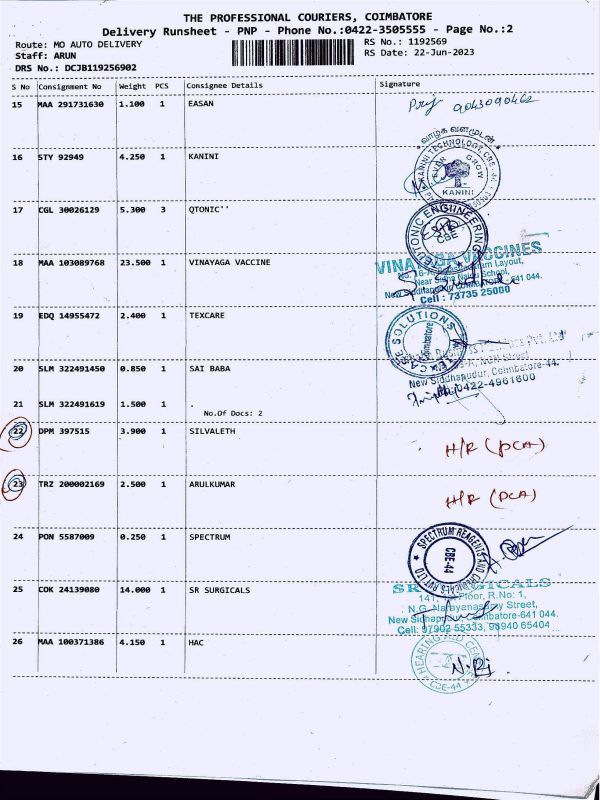 THE PROFESSIONAL COURIERS, COIMBATORE
Delivery Runsheet - PNP - Phone No.:0422-3505555 - Page No.:2
Route: MO AUTO DELIVERY
RS No.: 1192569
Staff: ARUN
RS Date: 22-Jun-2023
DRS No.: DCJB119256902
S No Consignment No Weight PCS Consignee Details Signature
15 MAA 291731630 1.100 1 EASAN
9043090462
வாழ்க வளமுடன்
16 STY 92949 4.250 1 KANINI
KANINI TECHNOLOGY CBE
EVER GROW
KANINI
17 CGL 30026129 5.300 3 QTONIC''
TEUTONIC ENGINEERING
CBE
18 MAA 103089768 23.500 1 VINAYAGA VACCINE
VINAYAGA VACCINES
Layout,
Near School,
New Siddhapudur, Coimbatore-641 044.
Cell : 73735 25000
19 EDQ 14955472 2.400 1 TEXCARE
CASE SOLUTIONS
Coimbatore
Pvt. Ltd
Street
New Siddhapudur, Coimbatore-44.
0422-4961600
20 SLM 322491450 0.850 1 SAI BABA
21 SLM 322491619 1.500 1 .
No.Of Docs: 2
22 DPM 397515 3.900 1 SILVALETH
H/R (PCA)
23 TRZ 200002169 2.500 1 ARULKUMAR
H/R (PCA)
24 PON 5587009 0.250 1 SPECTRUM
SPECTRUM REAGENTS AND CHEMICALS PVT LTD
CBE-44
25 COK 24139080 14.000 1 SR SURGICALS
SR SURGICALS
141, 1st Floor, R.No: 1,
N.G. Narayanasamy Street,
New Sidhapudur, Coimbatore-641 044.
Cell: 97902 55333, 98940 65404
26 MAA 100371386 4.150 1 HAC
HEARING AID CENTRE
CBE-44